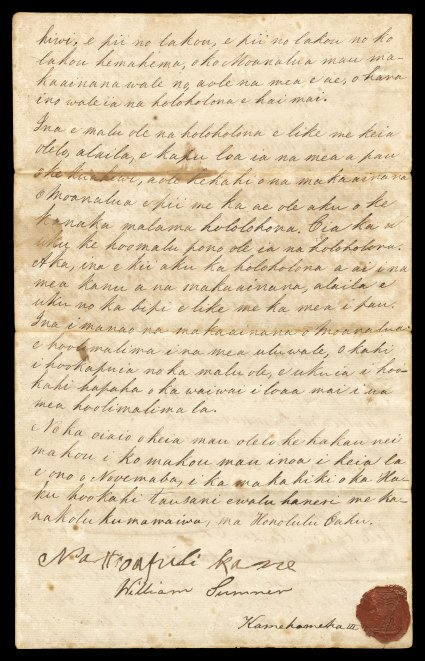 kiwi, e pii no lakou, e pii no lakou no ko
lakou hemahema, o ko Moanalua mau ma-
kaainana wale no, aole na mea e ae, o hana
ino wale ia na holoholona e hai mai.
Ina e malu ole na holoholona e like me keia
olelo, alaila, e kapu loa ia na mea a pau
o ke kuahiwi, aole kekahi o na makaainana
o Moanalua e pii me ka ae ole aku o ke
kanaka malama holoholona. Eia ka u
uku ke hoomalu pono ole ia na holoholona.
Aka, ina e kii aku ka holoholona a ai i na
mea kanu a na makaainana, alaila e
uku no ka bipi e like me ka mea i pau.
Ina i manao na makaainana o Moanalua
e hoolimalima i na mea uluwale, o kahi
i hookapuia no ka malu ole, e uku ia i hoo-
kahi hapaha o ka waiwai i loaa mai i ua
mea hoolimalima la.
No ka oiaio o keia mau olelo ke kakau nei
makou i ko makou mau inoa i keia la
e ono o Novemaba, i ka makahiki o ka Ha-
ku hookahi tausani ewalu haneri me ka-
nakolu kumamaiwa, ma Honolulu Oahu.
Na Hoapili kane
William Sumner
Kamehameha III